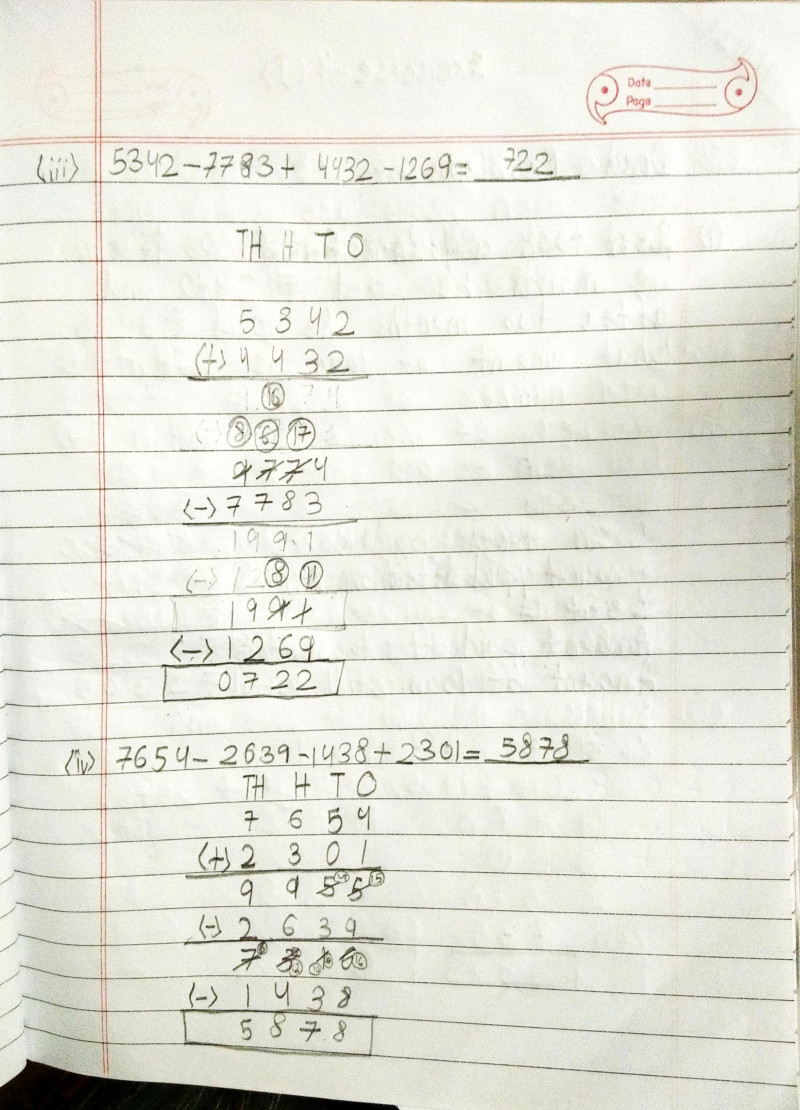 Date
Page
(iii) 5342-7783+ 4432-1269= 722
TH H T O
5 3 4 2
(+) 4 4 3 2
16
(-) 8 6 17
9 7 7 4
(-) 7 7 8 3
1 9 9 1
(-) 1 2 8 11
1 9 9 1
(-) 1 2 6 9
0 7 2 2
(iv) 7654- 2639-1438+2301= 5878
TH H T O
7 6 5 4
(+) 2 3 0 1
9 9 5 4 5 15
(-) 2 6 3 9
7 3 1 6
(-) 1 4 3 8
5 8 7 8